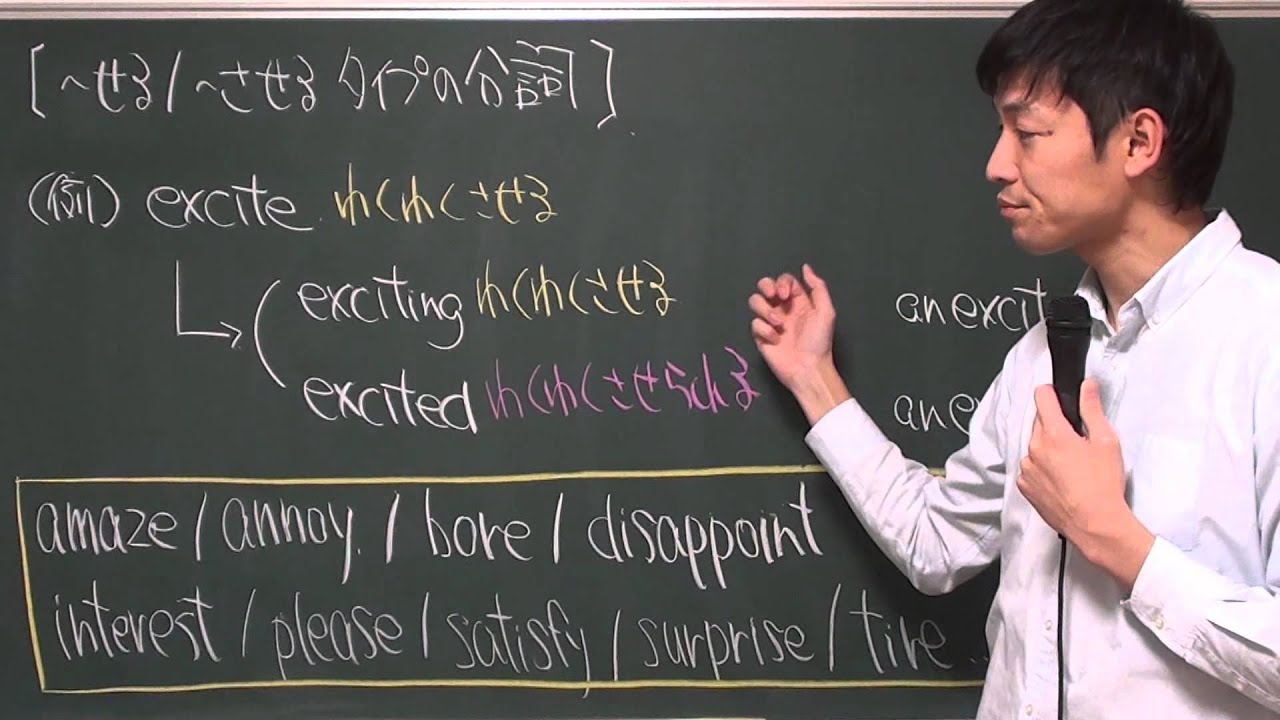 [～せる/～させるタイプの分詞]
(例) excite わくわくさせる
exciting わくわくさせる
an excit
excited わくわくさせられる
an ex
amaze / annoy / bore / disappoint
interest / please / satisfy / surprise / tire...